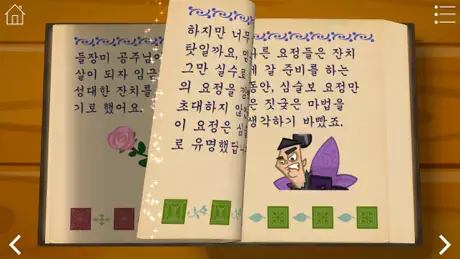 들장미 공주님
살이 되자 임금
성대한 잔치를
기로 했어요.
하지만 너무
탓일까요,
그만 실수로
의 요정을
초대하지
이 요정은
로 유명했답
요정들은 잔치
갈 준비를 하는
동안, 심술보 요정만
은 짓궂은 마법을
생각하기 바빴죠.